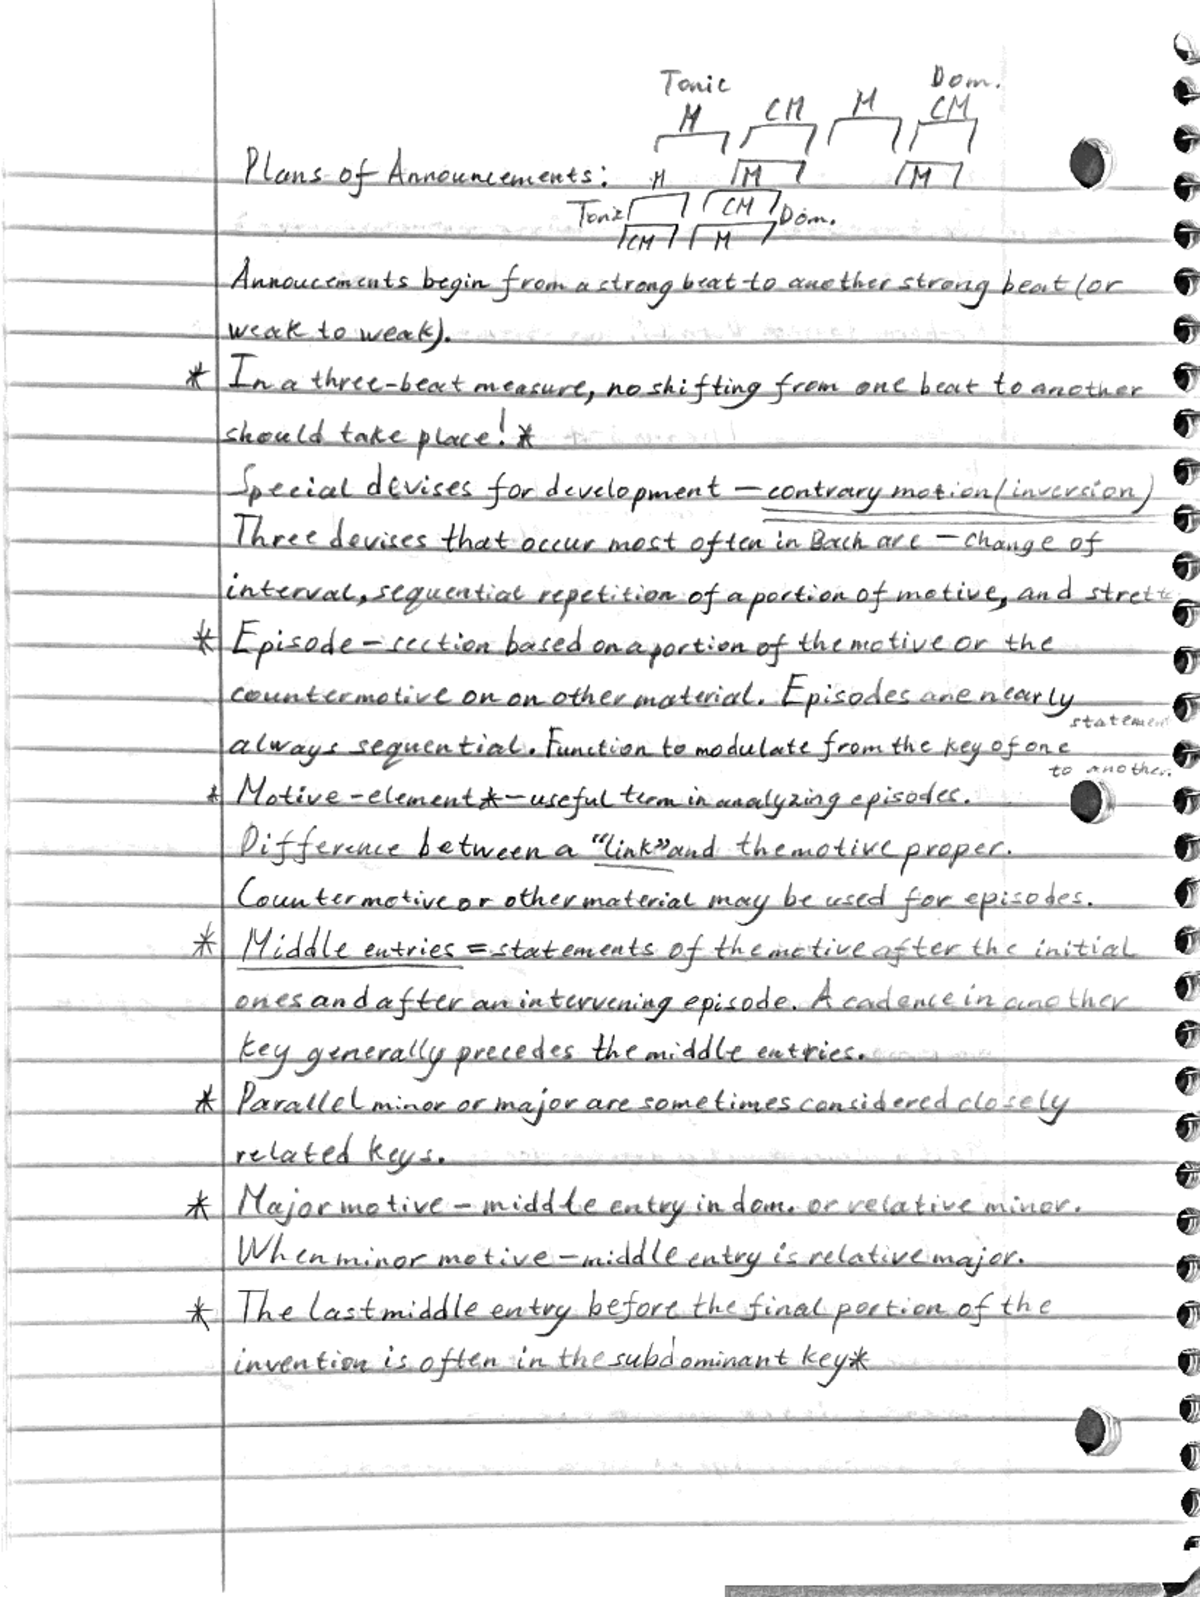 Tonic Dom.
M CM M CM
Plans of Announcements: M M M
Tonic CM Dom.
CM M
Annoucements begin from a strong beat to another strong beat (or
weak to weak).
* In a three-beat measure, no shifting from one beat to another
should take place! *
Special devises for development – contrary motion (inversion)
Three devises that occur most often in Bach are – change of
interval, sequential repetition of a portion of motive, and strett
* Episode – section based on a portion of the motive or the
countermotive on on other material. Episodes are nearly
always sequential. Function to modulate from the key of one statement
to another.
* Motive-element * – useful term in analyzing episodes.
Difference between a "link" and the motive proper.
Countermotive or other material may be used for episodes.
* Middle entries = statements of the motive after the initial
ones and after an intervening episode. A cadence in another
key generally precedes the middle entries.
* Parallel minor or major are sometimes considered closely
related keys.
* Major motive – middle entry in dom. or relative minor.
When minor motive – middle entry is relative major.
* The last middle entry before the final portion of the
invention is often in the subdominant key *